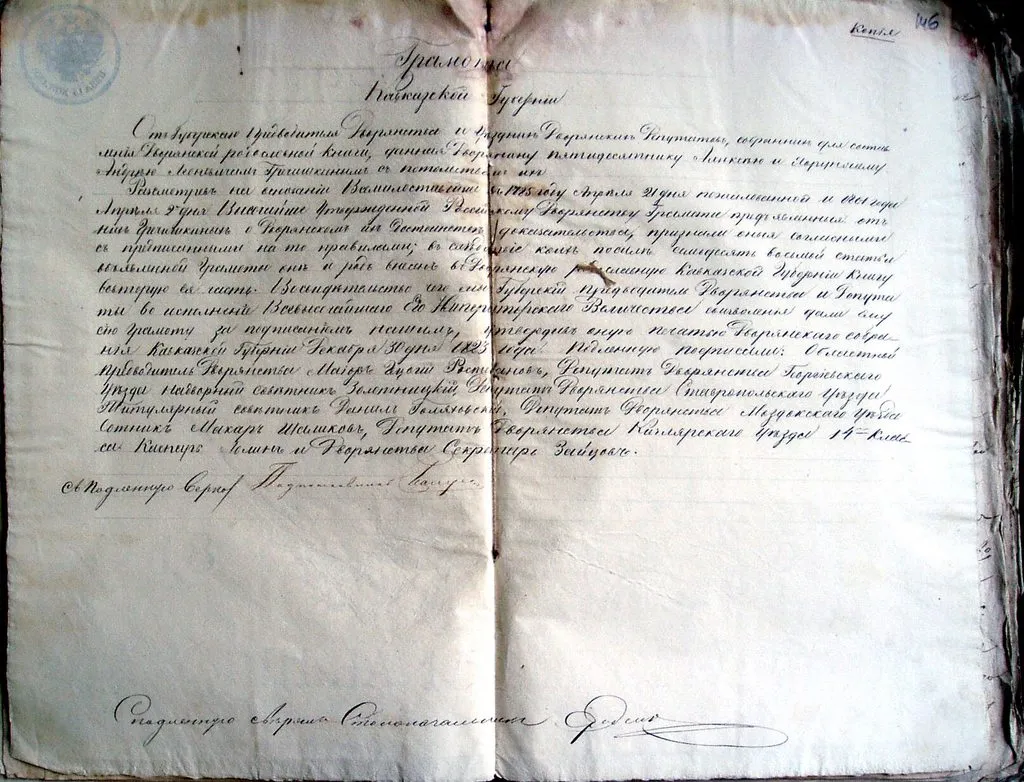 Копія
146
Грамота
Кавказской Губерніи
Отъ Губернскаго Предводителя Дворянства и уѣздныхъ Дворянскихъ Депутатовъ, собранныхъ для состав
ленія Дворянской родословной книги, данная Дворянину пятидесятнику и
Андрею Леонтьевичу Гречишкину съ потомствомъ его
Разсмотрѣвъ на основаніи Всемилостивѣйше въ 1785 году Апрѣля 21 дня пожалованной и 1801 года
Апрѣля 2 дня Высочайше утвержденной Россійскому Дворянству Грамоты предъявленныя отъ
нихъ Гречишкиныхъ о Дворянскомъ ихъ Достоинствѣ доказательства, признали оныя согласными
съ предписанными на то правилами; въ слѣдствіе коихъ по силѣ семьдесятъ восьмой статьи
объявленной Грамоты онъ и родъ внесенъ въ Дворянскую родословную Кавказской Губерніи Книгу
во вторую ея часть. Во свидѣтельство чего мы Губернскій предводитель Дворянства и Депута
ты во исполненіе Всевысочайшаго Его Императорскаго Величества соизволенія дали ему
сію Грамоту за подписаніемъ нашимъ, утвердивъ оную печатью Дворянскаго собра
нія Кавказской Губерніи Декабря 30 дня 1823 года. Подлинную подписали: Областный
предводитель Дворянства Маіоръ Депутатъ Дворянства Георгіевскаго
Уѣзда надворный совѣтникъ Депутатъ Дворянства Ставропольскаго Уѣзда
Титулярный совѣтникъ Данилъ Депутатъ Дворянства Моздокскаго Уѣзда
Сотникъ Макаръ Депутатъ Дворянства Кизлярскаго Уѣзда 14го Клас
са Каспаръ и Дворянства Секретарь Зайцовъ.
Съ подлинною вѣрно
Съ подлинною вѣрно Столоначальникъ